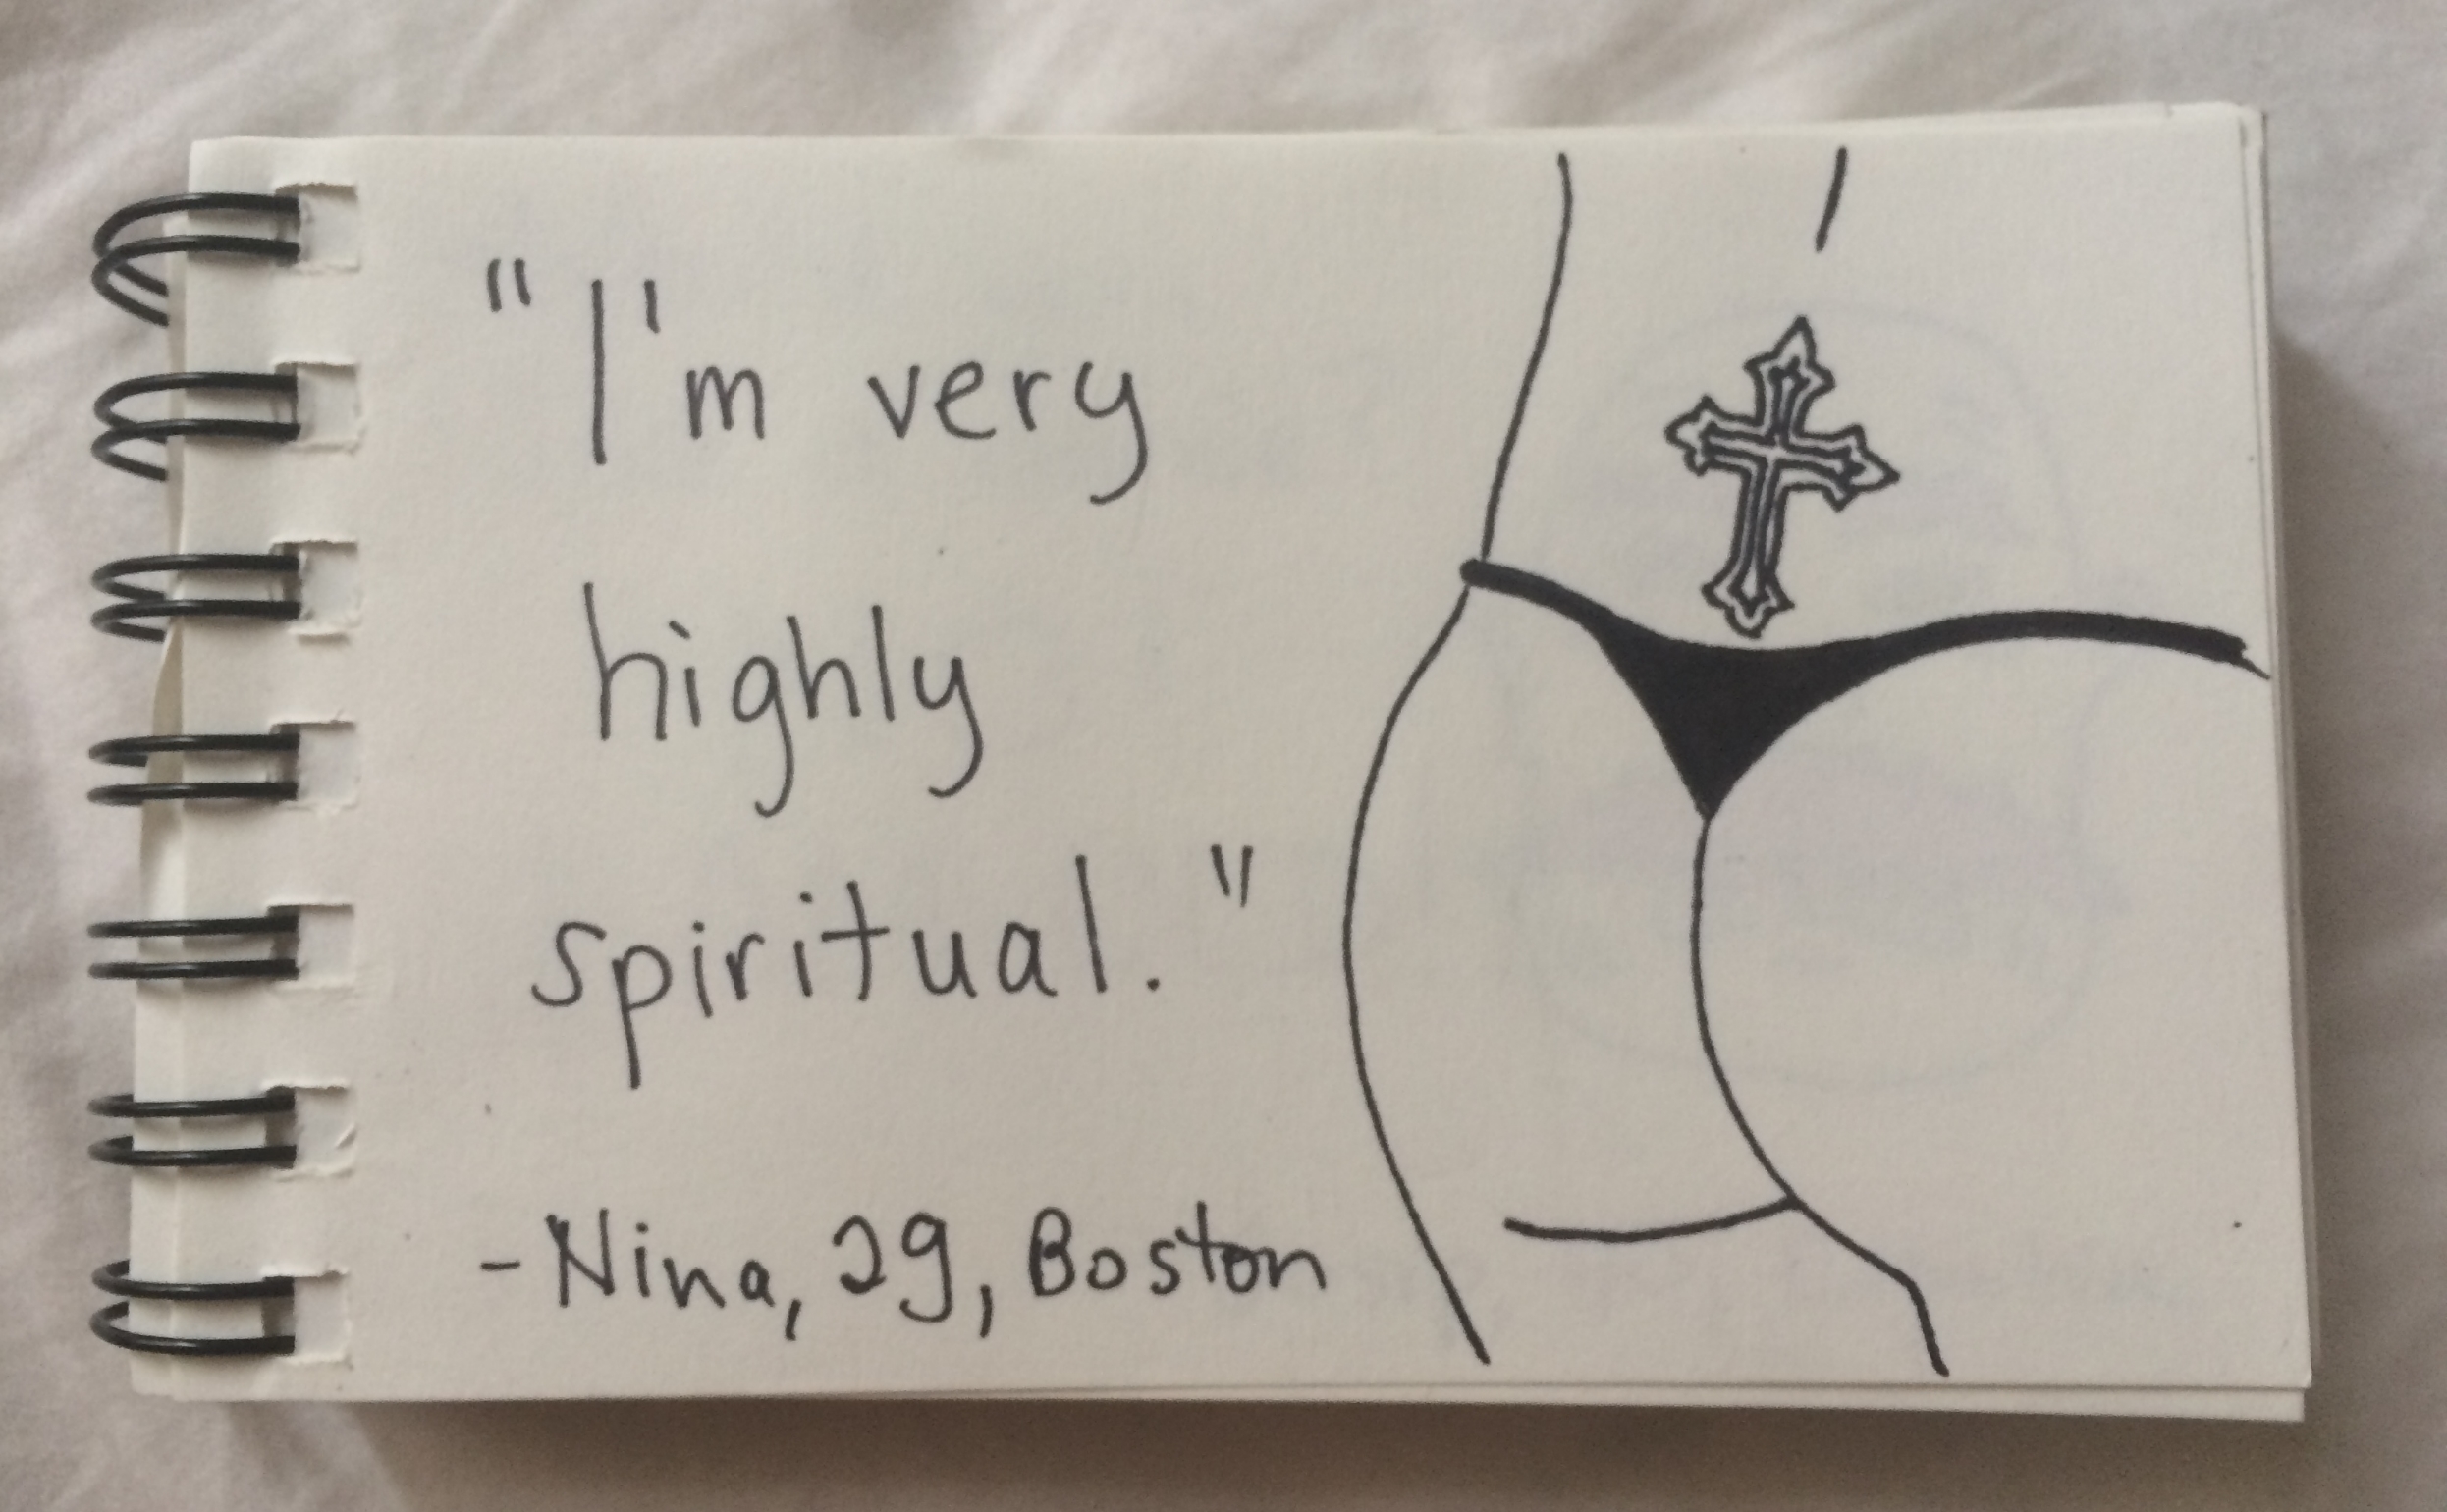 "I'm very
highly
spiritual."
-Nina, 29, Boston